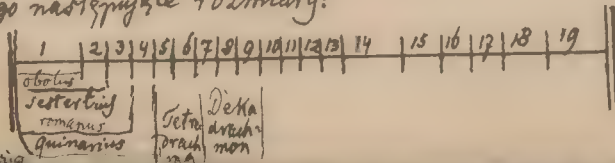 go następujące rozmiary:
1 2 3 4 5 6 7 8 9 10 11 12 13 14 15 16 17 18 19
obolus
sestertius
romanus
quinarius
Tetra
drach
ma
DeKa
drach=
mon